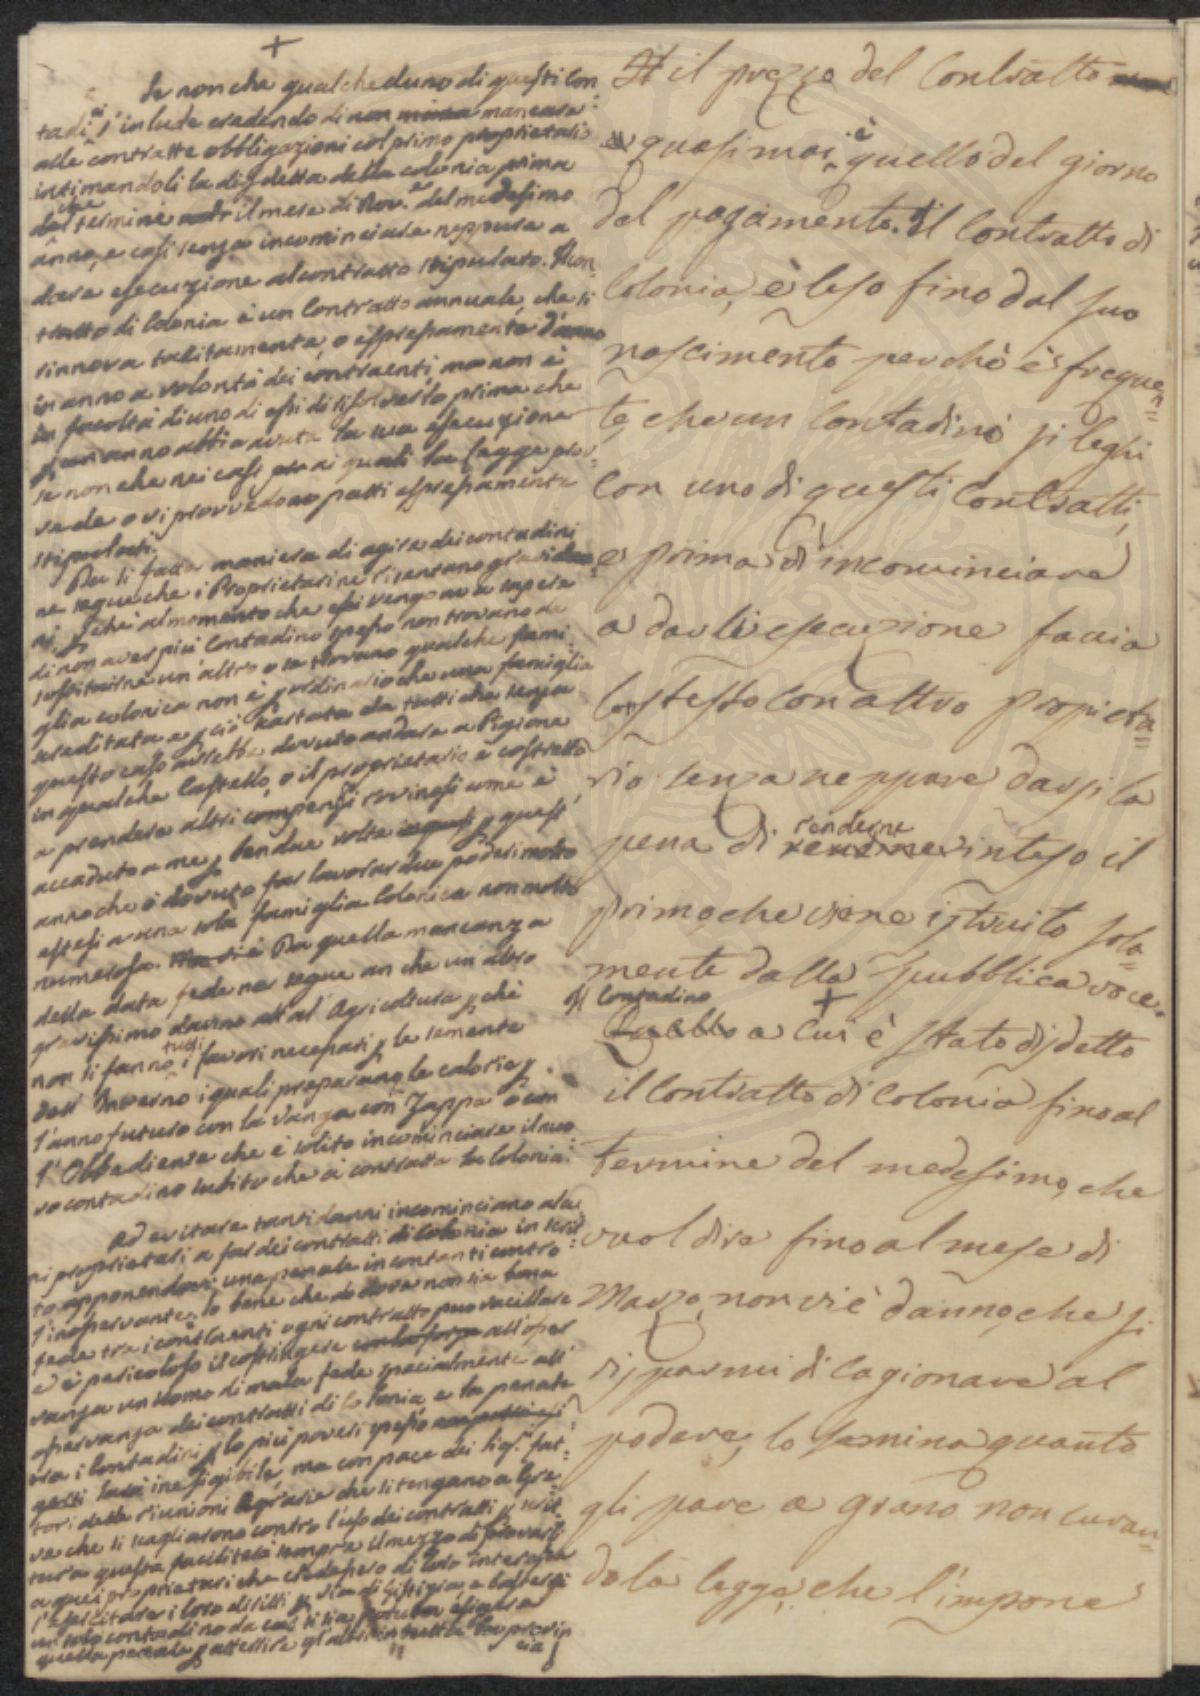 Il il prezzo del Contratto
quasi mai è quello del giorno
del pagamento. Il Contratto di
Colonia, è leso fino dal suo
nascimento perchè è freque=
te, che un Contadino si leghi
con uno di questi Contratti,
e prima di incominciare
a darli esecuzione faccia
lo stesso con altro propieta=
rio senza neppure darsi la
pena di renderne inteso il
primo, che viene istruito sola=
mente dalla pubblica voce.
Il Contadino +
Quello a cui è stato disdetto
il Contratto di Colonia fino al
termine del medesimo, che
vuol dire fino al mese di
Marzo, non vi è danno, che si
risparmi di cagionare al
podere, lo semina quanto
gli pare a grano non curan=
do la legge, che l'impone
+
Se non che qualcheduno di questi Con
tadini s'inlude credendo di non mancare
alle contratte obbligazioni col primo proprietario
intimandoli la disdetta della colonia prima
del termine il mese di Nov.e del medesimo
anno, e così senza incominciare neppure a
dare esecuzione al contratto stipulato. Il con=
tratto di Colonia è un Contratto annuale, che si
rinnova tacitamente, o espressamente d'anno
in anno a volontà dei contraenti, ma non è
in facoltà di uno di essi di risolverlo prima che
un anno abbia avuta la sua esecuzione
se non che nei casi, per ai quali la Legge prov=
vede o vi provvedono patti espressamente
stipulati.
Da sì fatta maniera di agire dei contadini
ne segue che i Proprietari ne risentano gravi dan
ni, al momento che essi vengono a sapere
di non aver più Contadino spesso non trovano da
sostituirne un altro o se trovano qualche fami
glia colonica non è ordinario che una famiglia
screditata e p ciò scartata da tutti che senza
questo caso avrebbe dovuto andare a Pigione
in qualche Castello, o il proprietario è costretto
a prendere altri compensi rovinosi come è
accaduto a me p ben due volte p quest'
anno che ò dovuto far lavorar due poderi molto
estesi a una sola famiglia Colonica non molto
numerosa. Da quella mancanza
della data fede ne segue anche un altro
gravissimo danno all' Agricoltura p chè
non si fanno tutti i favori necessari p la sementa
dell' Inverno i quali preparano le calorie p
l'anno futuro con la Vanga con Zappa o con
l'Obbediente che è solito incominciare il nuo
vo contadino subito che à contratta la Colonia.
Ad evitare tanti danni incominciano alcu
ni proprietari a far dei contratti di Colonia in scrit
to apponendovi una penale in contanti contro
l'inosservante; lo bene che dove non sia buona
fede tra i contraenti ogni contratto può vacillare
e è pericoloso il costringere all'osser
vanza un Uomo di mala fede specialmente all'
osservanza dei contratti di Colonia, e la penale
tra i Contadini p lo più poveri spesso
inesigibile, ma con pace dei Sigri fat=
tori delle riunioni Agrarie che si tengano a Gre=
ve che si scagliarono contro l'uso dei contratti p scrit=
tura questa faciliterà sempre il mezzo di provare
a quei proprietari che credessero di loro interesse
l'esercitare i loro diritti p via di Giustizia, e basterà
un solo contadino da cui si sia potuto esigere
quella penale p atterrire gl'altri in tutta la provin
cia